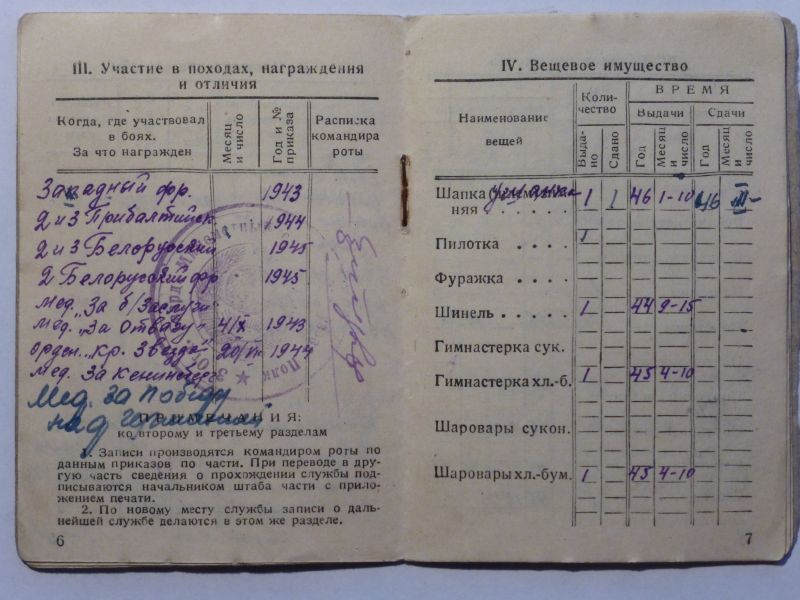 III. Участие в походах, награждения
и отличия
Когда, где участвовал
в боях.
За что награжден
Месяц
и число
Год и №
приказа
Расписка
командира
роты
Западный фр. 1943
2 и 3 Прибалтийск 1944
2 и 3 Белорусский 1945
2 Белорусский фр 1945.
Мед. „За б/Заслуги"
Мед. „За Отвагу" 4/X 1943
орден „Кр. Звезда" 1944
Мед. За Кенигсберг
Мед. За Победу
над Германией
ПРИМЕЧАНИЯ:
ко второму и третьему разделам
1. Записи производятся командиром роты по
данным приказов по части. При переводе в дру-
гую часть сведения о прохождении службы под-
писываются начальником штаба части с прило-
жением печати.
2. По новому месту службы записи о даль-
нейшей службе делаются в этом же разделе.
6
IV. Вещевое имущество
Наименование
вещей
Коли-
чество
ВРЕМЯ
Выдачи
Сдачи
Выда-
но
Сдано
Год
Месяц
и
число
Год
Месяц
и
число
Шапка ушанка 1 1 46 1-10 46 III-
няя
Пилотка . . . . 1
Фуражка . . . .
Шинель . . . . 1 44 9-15
Гимнастерка сук.
Гимнастерка хл.-б. 1 45 4-10
Шаровары сукон.
Шаровары хл.-бум. 1 45 4-10
7